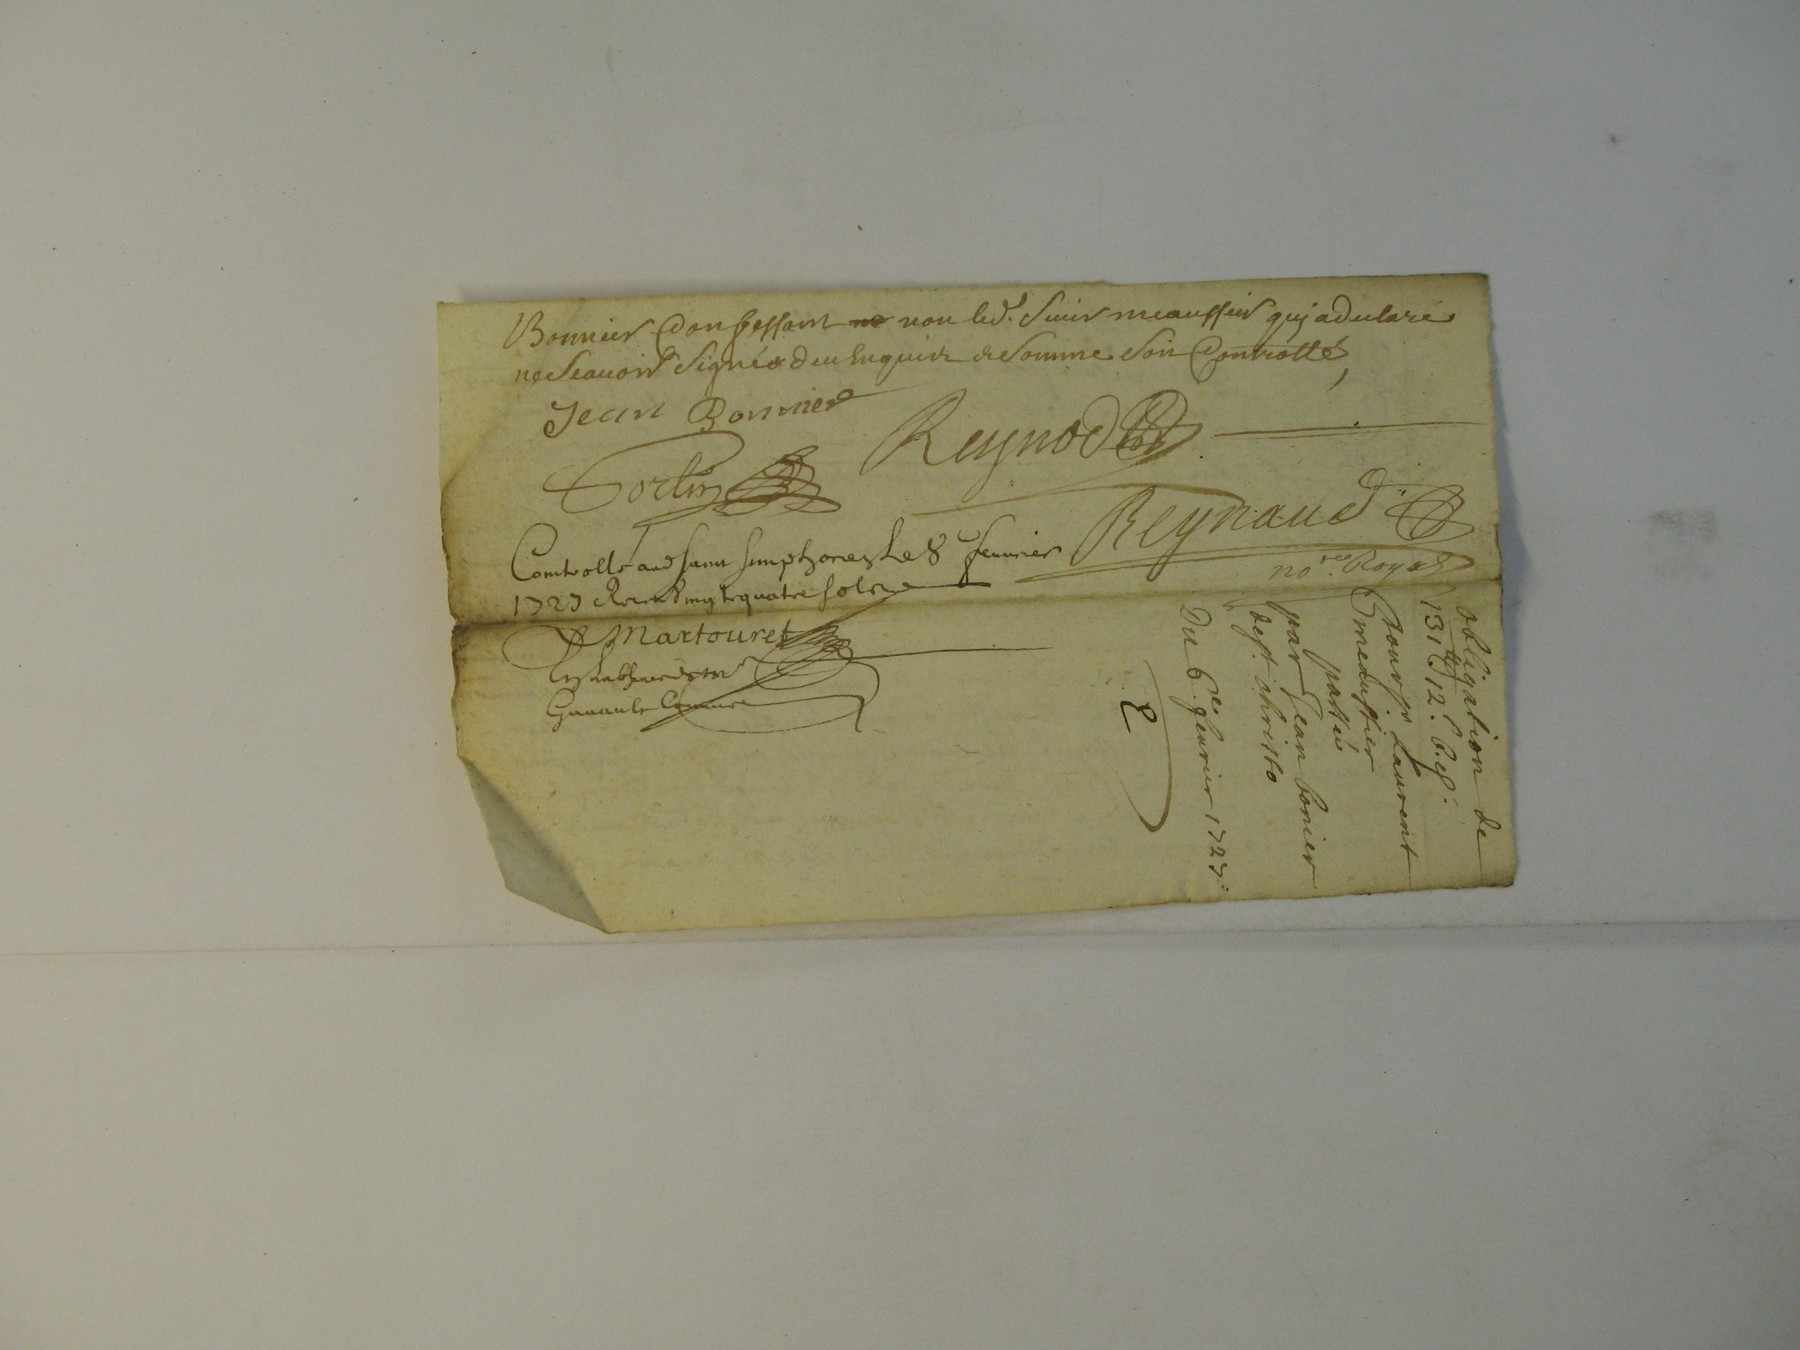 Bonnier Confessant non led. Sieur meaussier quj a declaré
ne scauoir signé de ce enquis & somme soit Controllé,
Jean Bonnier
Reynod
Fortin
Reynaud
no.re Royal
Controllé aud saint simphorien Le 8 feurier
1727 Receu vingt quatre sols
Martouret
obligation de
131 ₶ 12 s. 6 d.
Pour sr. Laurent
meaussier
passée
par Jean bonier
de st. christo
Du 6.e feurier 1727.